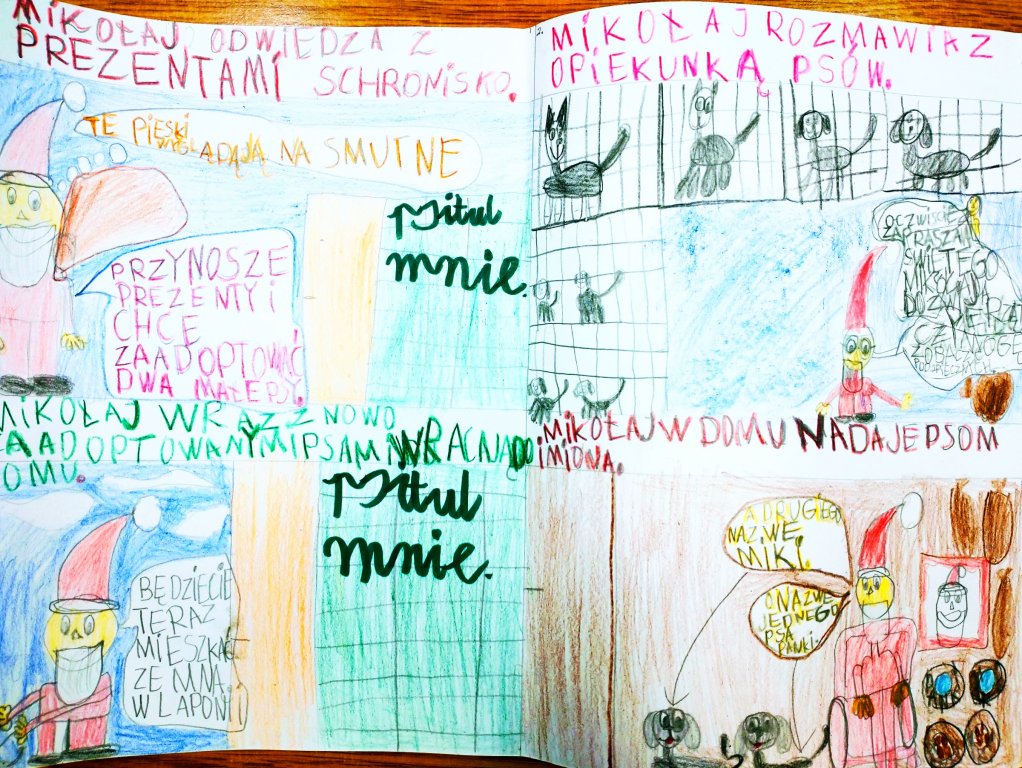 MIKOŁAJ ODWIEDZA Z
PREZENTAMI SCHRONISKO.
TE PIESKI
WYGLĄDAJĄ NA SMUTNE
PRZYNOSZE
PREZENTY I
CHCĘ
ZAADOPTOWAĆ
DWA
Pitul
mnie.
2.
MIKOŁAJ ROZMAWIA Z
OPIEKUNKĄ PSÓW.
OCZWIŚCIE
ZAPRASZAM
ŚWIĘTEGO
MIKOŁAJA
DO
CZY MOGĘ
ZOBACZ
MIKOŁAJ WRAZ Z NOWO
ZAADOPTOWANYMI PSAMI WRACA DO
DOMU.
BĘDZIECIE
TERAZ
MIESZKAĆ
ZE MNĄ
W LAPONI
Pitul
mnie.
MIKOŁAJ W DOMU NADAJE PSOM
IMIONA.
A DRUGIEGO
NAZWĘ
MIKI.
NAZWĘ
JEDNEGO
PSA
PANKI.